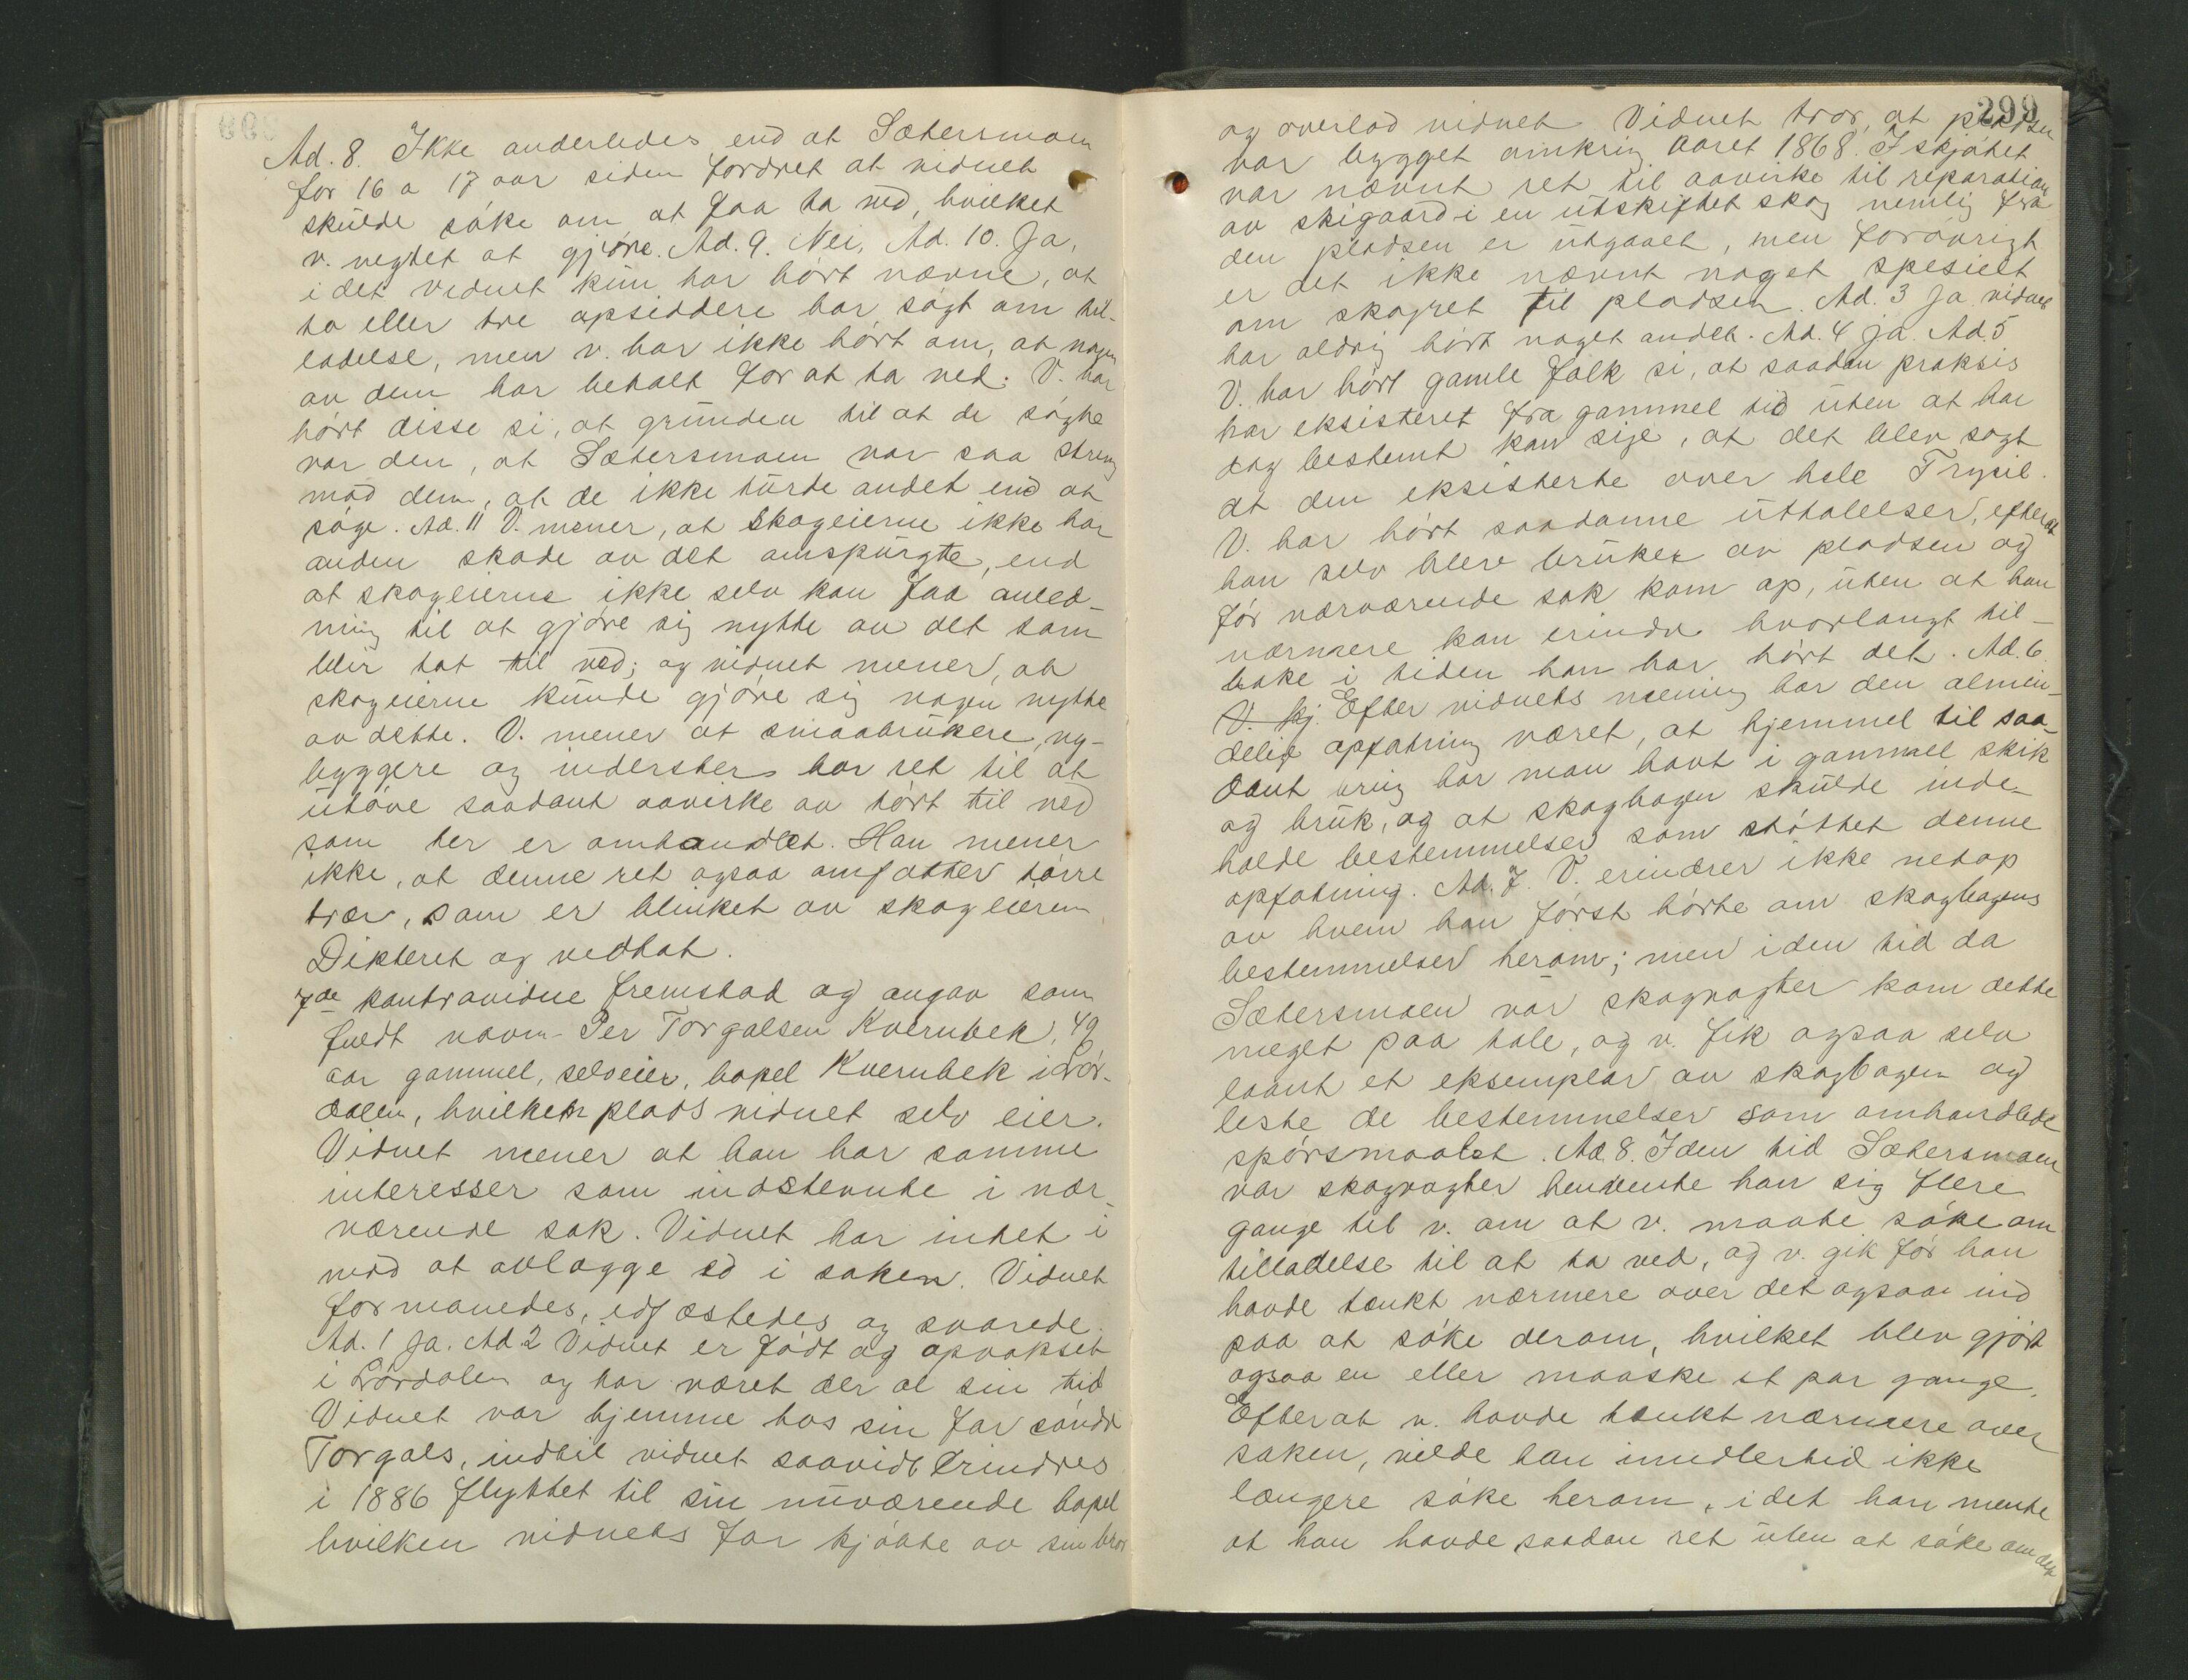 Ad. 8. Ikke anderledes end at Sætersmoen
for 16 a 17 aar siden fordret at vidnet
skulde søke om at faa ta ved, hvilket
v. negtet at gjøre. Ad. 9. Nei, Ad. 10. Ja,
i det vidnet kun har hørt nævne, at
to eller tre opsiddere har søgt om til-
ladelse, men v. har ikke hørt om, at nogen
av dem har betalt for at ta ved. V. har
hørt disse si, at grunden til at de søgte
var den, at Sætersmoen var saa streng
mod dem, at de ikke turde andet end at
søge. Ad. 11 V. mener, at skogeierne ikke har
anden skade av det omspurgte, end
at skogeierne ikke selv kan faa anled-
ning til at gjøre sig nytte av det som
blir tat til ved; og vidnet mener, at
skogeierne kunde gjøre sig nogen nytte
av dette. V. mener at smaabrukere, ny-
byggere og inderster har ret til at
utøve saadant aavirke av tørt til ved
som her er omhandlet. Han mener
ikke, at denne ret ogsaa omfatter tørre
trær, som er blinket av skogeieren.
Dikteret og vedtat.
7de kontravidne fremstod og angav som
fuldt navn Per Torgalsen Kvernbek, 49
aar gammel, selveier, bopel Kvernbek i Lør-
dalen, hvilken plads vidnet selv eier.
Vidnet mener at han har samme
interesser som indstevnte i nær-
værende sak. Vidnet har intet i
mod at avlægge ed i saken. Vidnet
formanedes, edfæstedes og svarede.
Ad. 1 Ja. Ad 2 Vidnet er født og opvokset
i Lørdalen og har været der al sin tid
Vidnet var hjemme hos sin far søndre
Torgals, indtil vidnet saavidt erindres
i 1886 flyttet til sin nuværende bopel
hvilken vidnets far kjøbte av sin bror
299
og overlod vidnet Vidnet tror, at pladsen
var bygget omkring aaret 1868. I skjøtet
var nævnt ret til aavirke til reparation
av skigaard i en utskiftet skog nemlig fra
den pladsen er utgaaet, men forøvrigt
er det ikke nævnt noget spesielt
om skogret til pladsen. Ad. 3 Ja vidnet
har aldrig hørt noget andet. Ad. 4 ja. Ad. 5
V. har hørt gamle folk si, at saadan praksis
har eksisteret fra gammel tid uten at han
dog bestemt kan sige, at det blev sagt
at den eksisterte over hele Trysil.
V. har hørt saadanne uttalelser, efter at
han selv blev bruker av pladsen og
før nærværende sak kom op, uten at han
nærmere kan erindre hvorlangt til-
bake i tiden han har hørt det. Ad. 6
V. kj. Efter vidnets mening har den almin-
delige opfatning været, at hjemmel til saa-
dant bruk har man havt i gammel skik
og bruk, og at skogbogen skulde inde-
holde bestemmelser som støttet denne
opfatning. Ad. 7. V. erindrer ikke netop
av hvem han først hørte om skogbogens
bestemmelser herom; men i den tid da
Sætersmoen var skogvogter kom dette
meget paa tale, og v. fik ogsaa selv
laant et eksemplar av skogbogen og
leste de bestemmelser som omhandlede
spørsmaalet. Ad. 8. I den tid Sætersmoen
var skogvogter henvente han sig flere
gange til v. om at v. maate søke om
tilladelse til at ta ved, og v. gik før han
havde tænkt nærmere over det ogsaa ind
paa at søke derom, hvilket blev gjort
ogsaa en eller maaske et par gange.
Efter at v. havde tænkt nærmere over
saken, vilde han imidlertid ikke
længere søke herom, i det han mente
at han havde saadan ret uten at søke om det